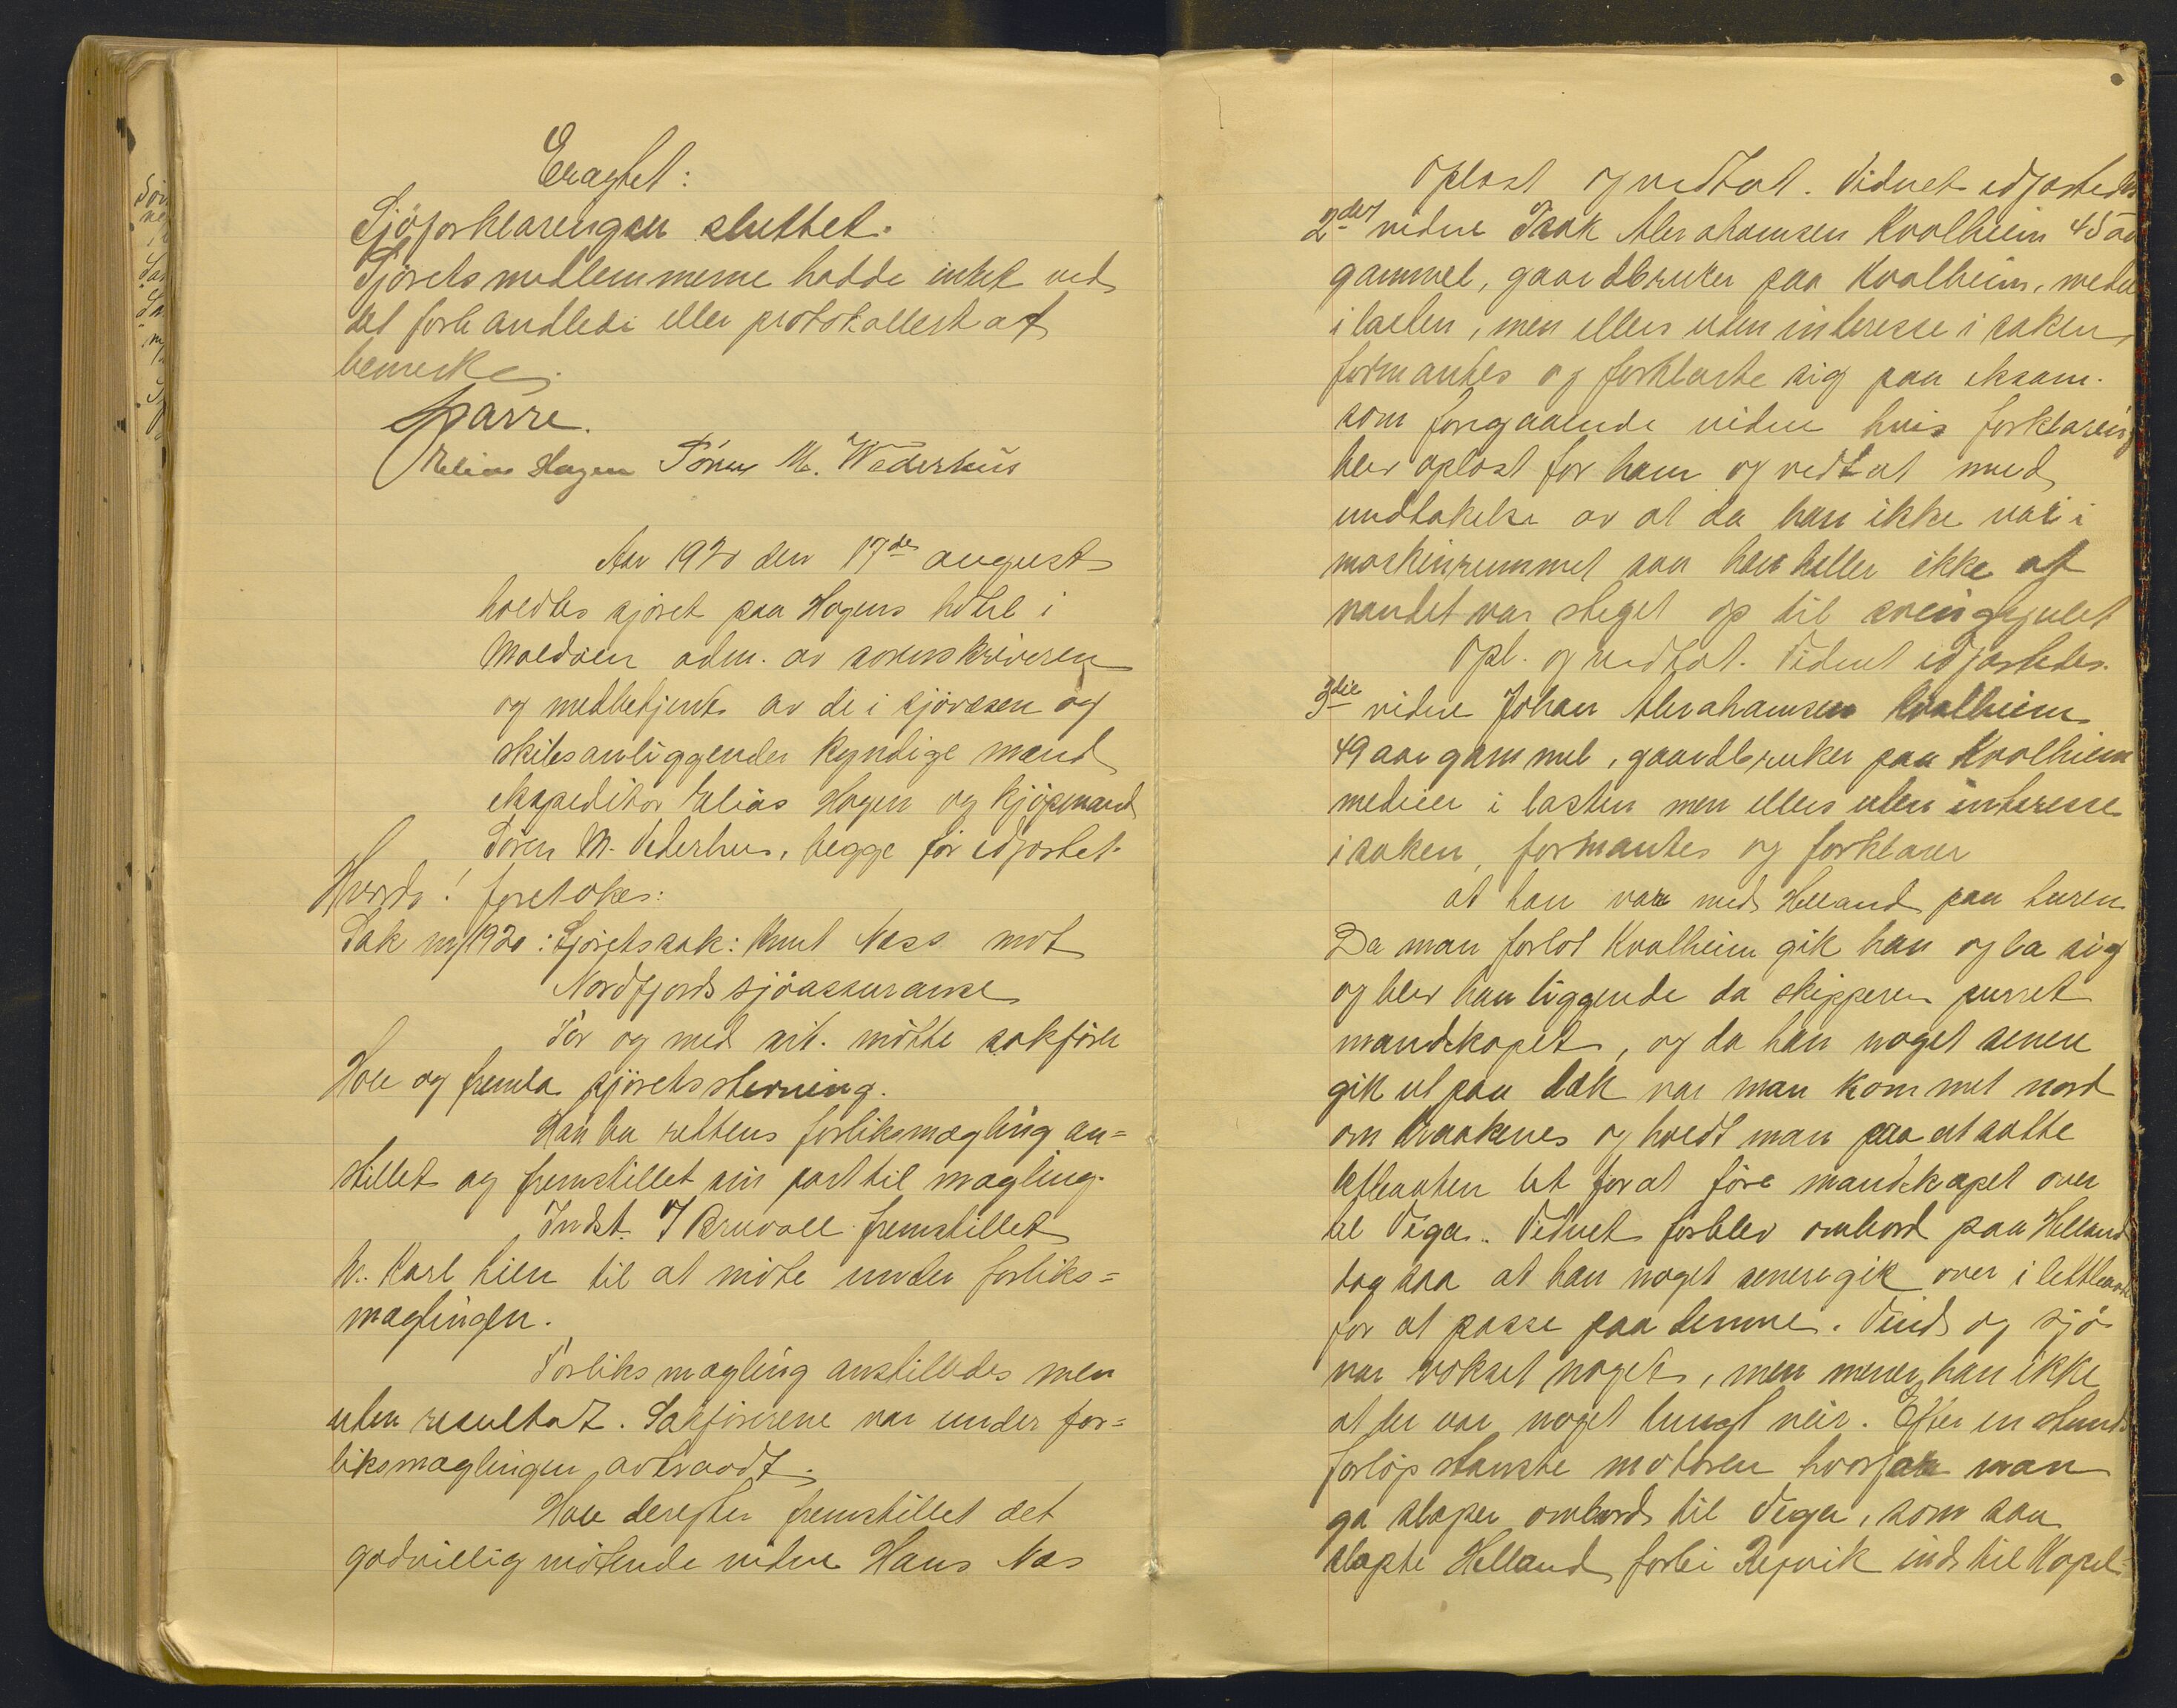 Eragtet:
Sjöforklaringen sluttet.
Sjöretsmedlemmerne hadde intet ved
det forhandlede eller protokollerte at
bemerke.
Sparre.
Elias Hagen Sören M. Wederhus
Aar 1920 den 17des august
holdtes sjöret paa Hagens hotel i
Maaløen adm. av sorenskriveren
og medbetjent av de i sjövæsen og
skibsanliggender kyndige mænd
ekspeditør Elias Hagen og kjöpmand
Sören M. Vederhus, begge för edfæstet.
Hvorda! foretokes:
Sak nr /1920: Sjöretssak: Knut Næss mot
Nordfjords sjöassuranse
For og med cit. mötte sakförer
Hole og fremla sjöretsstevning.
Han ba rettens forliksmægling an=
stillet og fremstillet sin part til mægling.
Indst. J Bruvoll fremstillet
hr. Karl Lien til at möte under forliks=
mæglingen.
Forliksmægling anstilledes men
uten resultat. Sakförerene var under for=
liksmæglingen avtraadt.
Hole derefter fremstillet det
godvillig mötende vidne Hans Næs
Oplæst og vedtat. Vidnet edfæstedes
2det vidne Isak Abrahamsen Kvalheim 45 aar
gammel, gaardbruker paa Kvalheim, medeier
i lasten, men ellers uten interesse i saken,
formantes og forklarte sig paa eksam.
som foregaaende vidne hvis forklaring
blev oplæst for ham og vedtat med
undtakelse av at da han ikke var i
maskinrummet saa han heller ikke at
vandet var steget op til svinghjulet
Opl. og vedtat. Vidnet edfæstedes.
3die vidne Johan Abrahamsen Kvalheim
49 aar gammel, gaardbruker paa Kvalheim
medeier i lasten men ellers uten interesse
i saken, formantes og forklarer
at han var med Helland paa turen
Da man forlot Kvalheim gik han og la sig
og blev han liggende da skipperen purret
mandskapet, og da han noget senere
gik ut paa dæk var man kommet nord
om Kraakenes og holdt man paa at sætte
letbaaten ut for at före mandskapet over
til Vega. Vidnet forblev ombord paa Helland
dog saa at han noget senere gik over i lettbaaten
for at passe paa denne. Vind og sjö
var vokset noget, men mener han ikke
at det var noget tungt veir. Efter en stunds
forløp stanste motoren hvorfor man
ga slæper ombord til Vega, som saa
slæpte Helland forbi Refvik ind til Kapel=